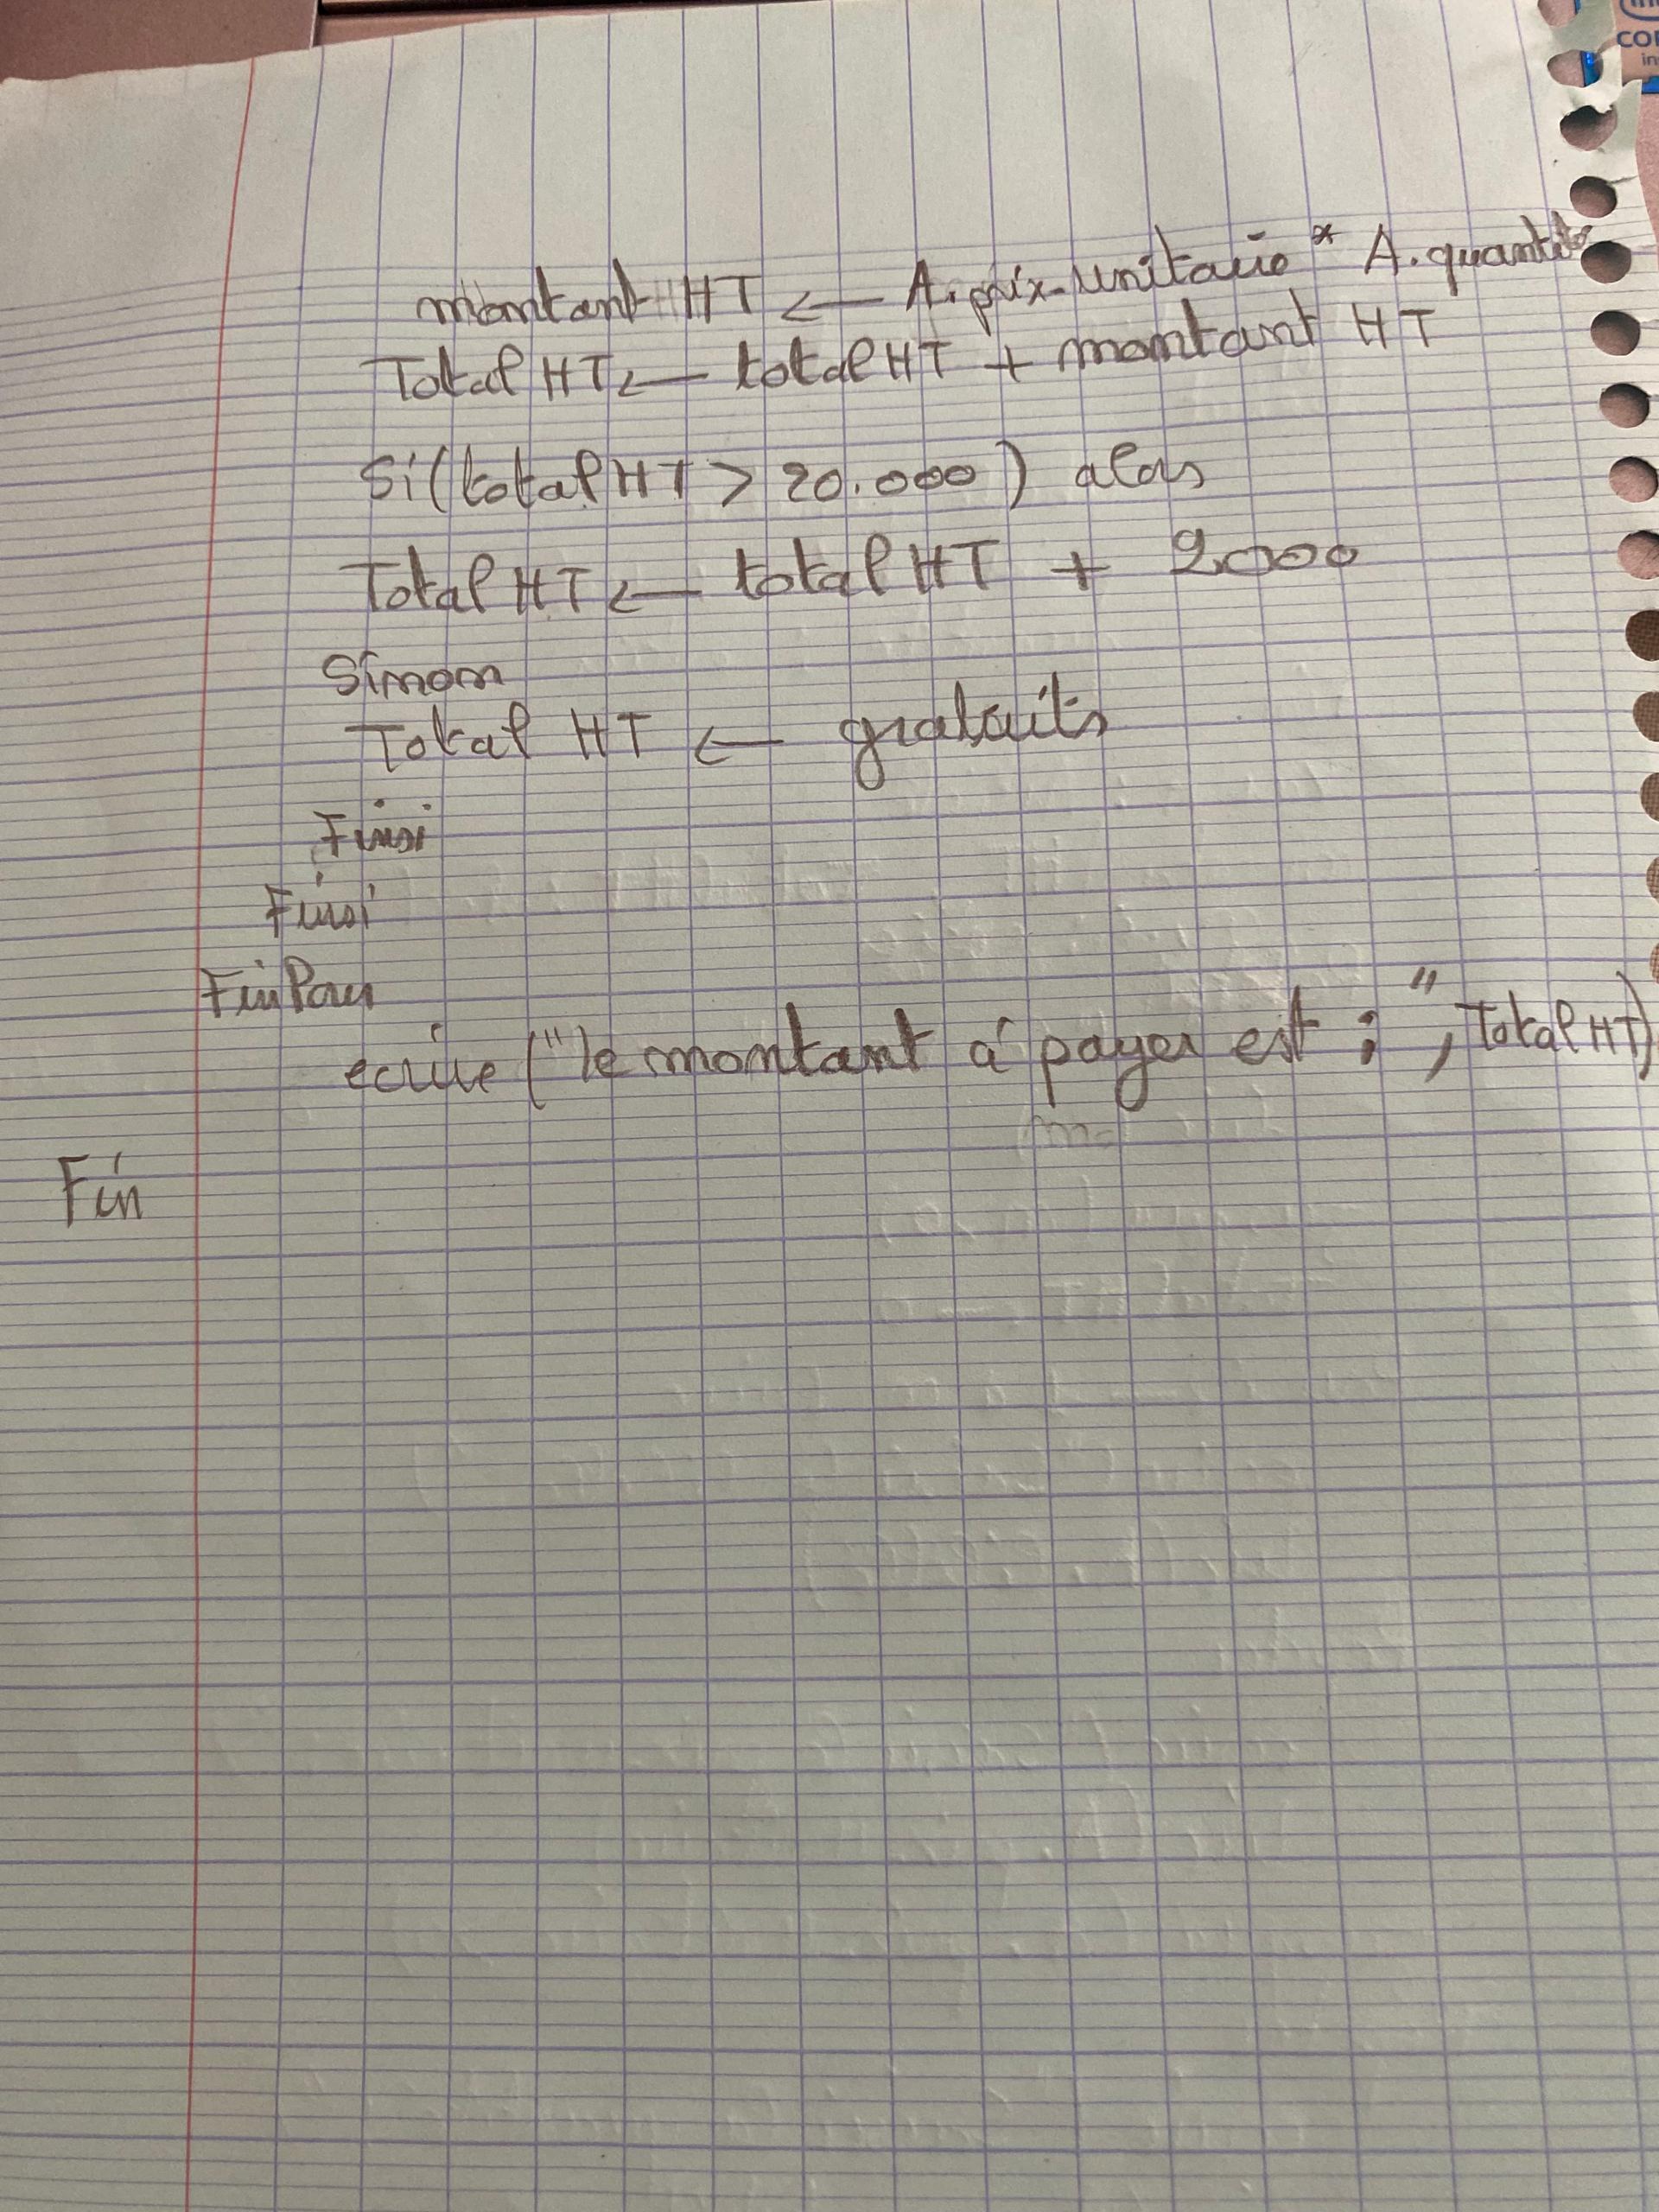 montant HT ← A.prix-unitaire * A.quantite
Total HT ← total HT + montant HT
Si (total HT > 20.000) alors
Total HT ← total HT + 2000
Sinon
Total HT ← gratuits
Finsi
Finsi
FinPour
ecrire ("le montant à payer est ; ", Total HT)
Fin